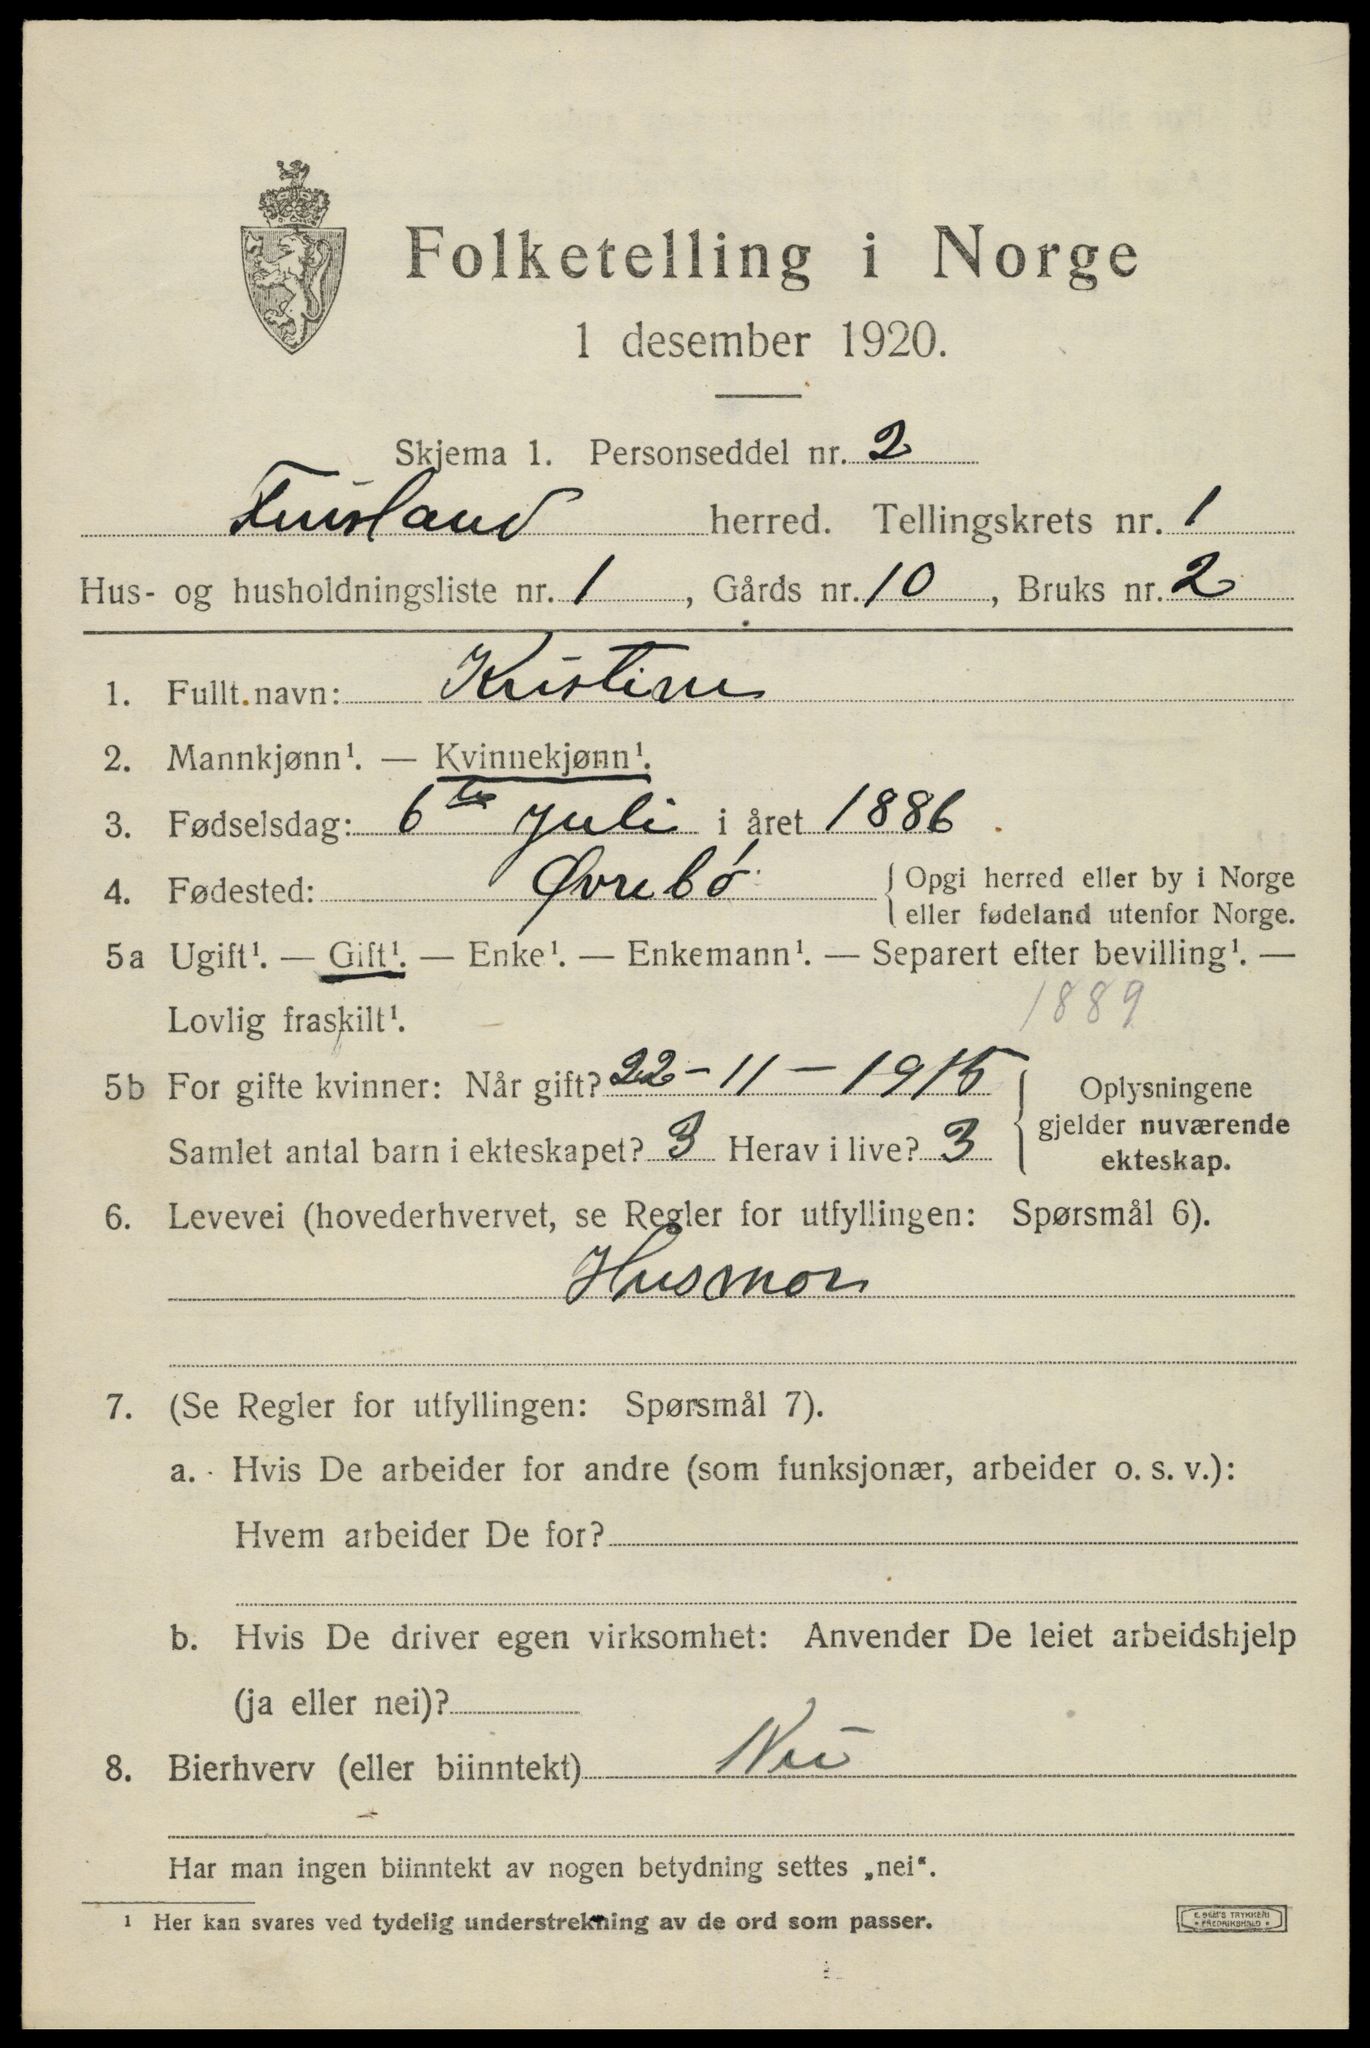 Folketelling i Norge
1 desember 1920.
Skjema 1. Personseddel nr. 2
Finsland herred. Tellingskrets nr. 1
Hus- og husholdningsliste nr. 1, Gårds nr. 10, Bruks nr. 2
1. Fullt navn: Kristine
2. Mannkjønn¹. — Kvinnekjønn¹.
3. Fødselsdag: 6te juli i året 1886.
4. Fødested: Øvrebø { Opgi herred eller by i Norge
eller fødeland utenfor Norge.
5a Ugift¹. — Gift¹. — Enke¹. — Enkemann¹. — Separert efter bevilling¹. —
Lovlig fraskilt¹. 1889
5b For gifte kvinner: Når gift? 22-11-1915 { Oplysningene
gjelder nuværende
Samlet antal barn i ekteskapet? 3 Herav i live? 3 ekteskap.
6. Levevei (hovederhvervet, se Regler for utfyllingen: Spørsmål 6).
Husmor
7. (Se Regler for utfyllingen: Spørsmål 7).
a. Hvis De arbeider for andre (som funksjonær, arbeider o. s. v.):
Hvem arbeider De for?
b. Hvis De driver egen virksomhet: Anvender De leiet arbeidshjelp
(ja eller nei)?
8. Bierhverv (eller biinntekt) Nei
Har man ingen biinntekt av nogen betydning settes „nei“.
¹ Her kan svares ved tydelig understrekning av de ord som passer.
E. SEM'S TRYKKERI
FREDRIKSHALD